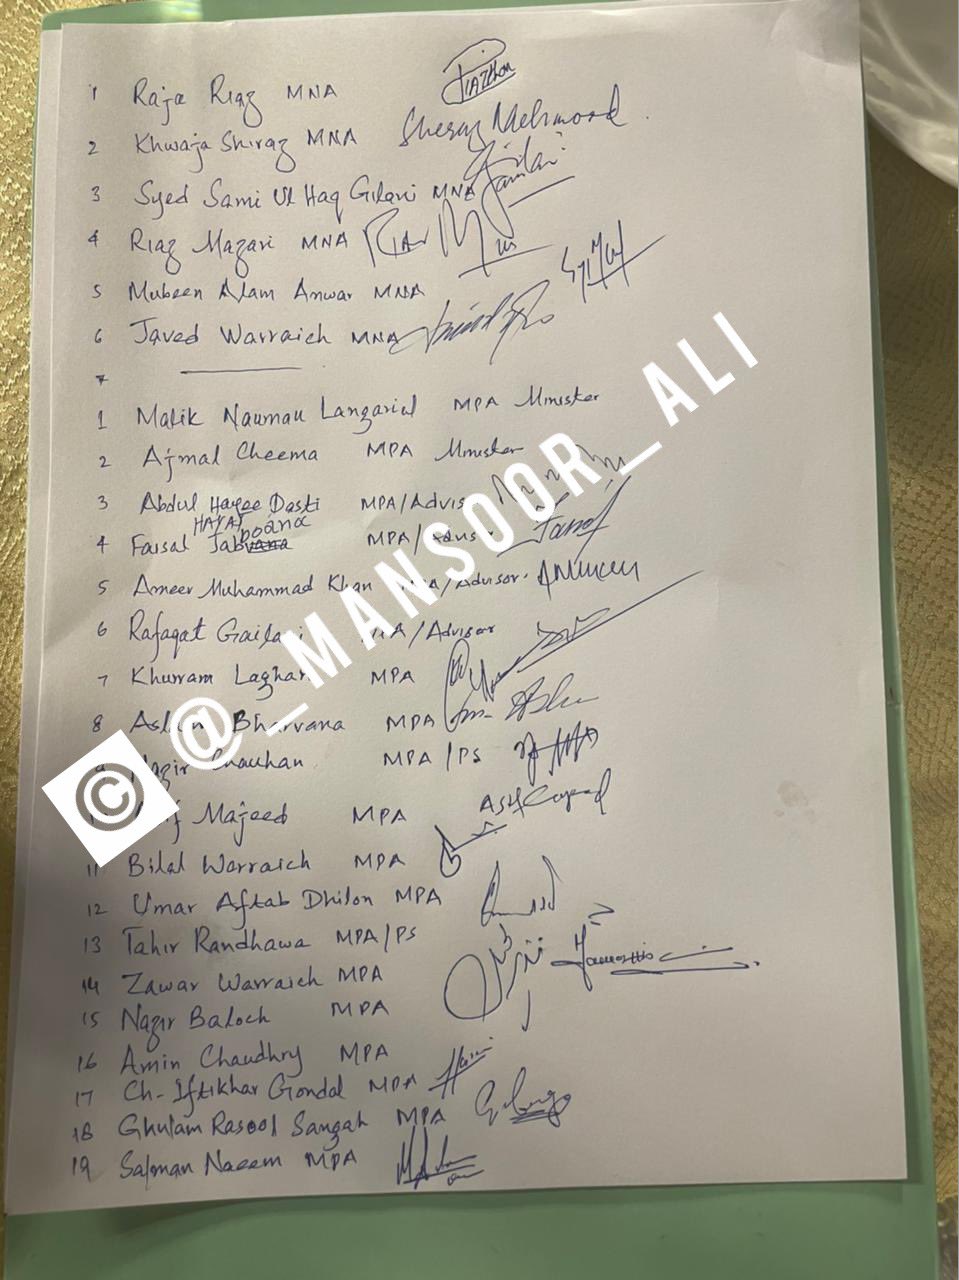 1 Raja Riaz MNA
2 Khwaja Shiraz MNA Sheraz Mehmood
3 Syed Sami Ul Haq Gilani MNA
4 Riaz Mazari MNA
5 Mubeen Alam Anwar MNA
6 Javed Warraich MNA
7
1 Malik Nauman Langarial MPA Minister
2 Ajmal Cheema MPA Minister
3 Abdul Hayee Dasti MPA/Advisor
HAYAT
4 Faisal Jaboana MPA/Advisor
5 Ameer Muhammad Khan MPA/Advisor
6 Rafaqat Gailani MPA/Advisor
7 Khurram Laghari MPA
8 Aslam Bharvana MPA
9 Nazir Chauhan MPA/PS
Majeed MPA
11 Bilal Warraich MPA
12 Umar Aftab Dhilon MPA
13 Tahir Randhawa MPA/PS
14 Zawar Warraich MPA
15 Nazir Baloch MPA
16 Amin Chaudhry MPA
17 Ch-Iftikhar Gondal MPA
18 Ghulam Rasool Sangah MPA
19 Salman Naeem MPA
© @_MANSOOR_ALI